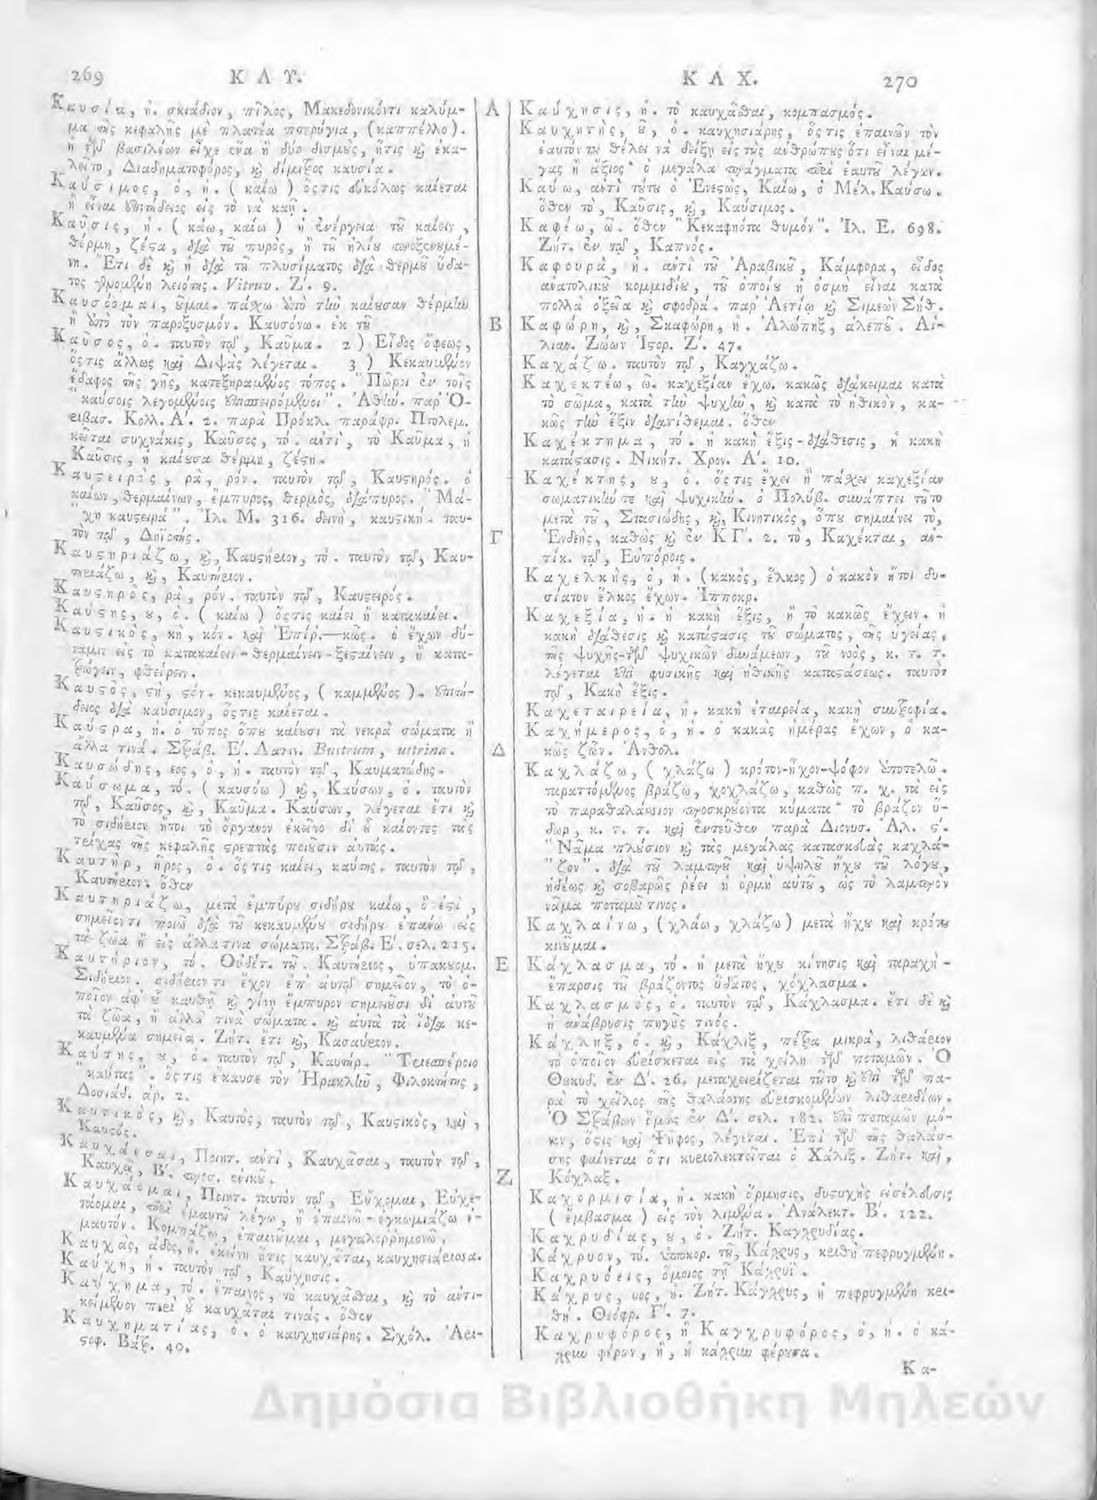 269 Κ Α Υ.
Καυσία, ἡ. σκιάδιον, πῖλος, Μακεδονικόντι καλύμ-
μα τῆς κεφαλῆς μὲ πλατέα πτερύγια, (καππέλλο).
ἡ τῶν βασιλέων εἶχε ἕνα ἢ δύο δεσμοὺς, ἥτις καὶ ἐκα-
λεῖτο, Διαδηματοφόρος, καὶ δίμιτος καυσία.
Καύσιμος, ὁ, ἡ. (καίω) ὅςτις εὐκόλως καίεται
ἢ εἶναι ἐπιτήδειος εἰς τὸ νὰ καῇ.
Καῦσις, ἡ. (κάω, καίω) ἡ ἐνέργεια τοῦ καίειν,
θέρμη, ζέςα, διὰ τοῦ πυρὸς, ἢ τοῦ ἡλίου προξενουμέ-
νη. Ἔτι δὲ καὶ ἡ διὰ τοῦ πλυσίματος διὰ θερμοῦ ὕδα-
τος γενομένη λειότης. Vitruv. Ζ΄. 9.
Καυσόομαι, οῦμαι. πάχω ὑπὸ τὴν καίουσαν θέρμην
ἢ ὑπὸ τὸν παροξυσμόν. Καυσόνω. ἐκ τοῦ
Καῦσος, ὁ. ταυτὸν τῷ, Καῦμα. 2) Εἶδος ὄφεως,
ὅςτις ἄλλως καὶ Διψὰς λέγεται. 3) Κεκαυμένον
ἔδαφος τῆς γῆς, κατεξηραμμένος τόπος. "Πῶροι ἐν τοῖς
"καύσοις λεγομένοις ἐπισπειρόμενοι". Ἀθήν. παρ' Ὀ-
ρειβασ. Κολλ. Α΄. 2. παρὰ Πρόκλ. παράφρ. Πτολεμ.
κεῖται συχνάκις, Καῦσος, τὸ. ἀντὶ, τὸ Καῦμα, ἡ
Καῦσις, ἡ καίουσα θέρμη, ζέςη.
Καυςειρὸς, ρὰ, ρόν. ταυτὸν τῷ, Καυςηρός. ὁ
καίων, θερμαίνων, ἔμπυρος, θερμὸς, διάπυρος. "Μά-
"χη καυςειρά". Ἰλ. Μ. 316. δεινὴ, καυςική. ταυ-
τὸν τῷ, Δηϊοτής.
Καυςηριάζω, καὶ, Καυςήριον, τό. ταυτὸν τῷ, Καυ-
τηριάζω, καὶ, Καυτήριον.
Καυςηρὸς, ρὰ, ρόν. ταυτὸν τῷ, Καυςειρός.
Καύςης, ου, ὁ. (καίω) ὅςτις καίει ἢ κατακαίει.
Καυςικὸς, κὴ, κόν. καὶ Ἐπίρ.—κῶς. ὁ ἔχων δύ-
ναμιν εἰς τὸ κατακαίειν - θερμαίνειν - ξεςαίνειν, ἢ κατα-
τρώγειν, φθείρειν.
Καυςὸς, ςὴ, ςόν. κεκαυμένος, (καμμένος). ἐπιτή-
δειος διὰ καύσιμον, ὅςτις καίεται.
Καύςρα, ἡ. ὁ τόπος ὅπου καίουσι τὰ νεκρὰ σώματα ἢ
ἄλλα τινά. Στράβ. Ε΄. Λατιν. Bustrum, ustrina.
Καυσώδης, εος, ὁ, ἡ. ταυτὸν τῷ, Καυματώδης.
Καύσωμα, τό. (καυσόω) καὶ, Καύσων, ὁ. ταυτὸν
τῷ, Καῦσος, καὶ, Καῦμα. Καύσων, λέγεται ἔτι καὶ
τὸ σιδήριον ἤτοι τὸ ὄργανον ἐκεῖνο δι' οὗ καίοντες τὰς
τρίχας τῆς κεφαλῆς ςρεπτὰς ποιοῦσιν αὐτάς.
Καυτὴρ, ῆρος, ὁ. ὅςτις καίει, καύτης. ταυτὸν τῷ,
Καυτήριον. ὅθεν
Καυτηριάζω, μετὰ ἐμπύρου σιδήρου καίω, ὅ ἐςι,
σημεῖόντι ποιῶ διὰ τοῦ κεκαυμένου σιδήρου ἐπάνω εἰς
τὰ ζῶα ἢ εἰς ἄλλα τινα σώματα. Στράβ. Ε΄. σελ. 215.
Καυτήριον, τό. Οὐδέτ. τοῦ. Καυτήριος, ὑπακουομ.
Σιδήριον. σιδήριόντι ἔχον ἐπ' αὐτῷ σημεῖον, τὸ ὁ-
ποῖον ἀφ' οὗ καυθῇ καὶ γίνῃ ἔμπυρον σημειοῦσι δι' αὐτοῦ
τὰ ζῶα, ἢ ἄλλα τινὰ σώματα. καὶ αὐτὰ τὰ ἴδια κε-
καυμένα σημεῖα. Ζήτ. ἔτι καὶ, Κασαύριον.
Καύτης, ου, ὁ. ταυτὸν τῷ, Καυτήρ. "Τριεσπέροιο
"καύτας". ὅςτις ἔκαυσε τὸν Ἡρακλῆν, Φιλοκτήτης,
Δοσιάδ. ἀρ. 2.
Καυτικὸς, καὶ, Καυτὸς, ταυτὸν τῷ, Καυςικὸς, καὶ,
Καυςός.
Καυχάεσαι, Ποιητ. ἀντὶ, Καυχᾶσαι, ταυτὸν τῷ,
Καυχᾷ, Β΄. προσ. ἑνικοῦ.
Καυχάομαι, Ποιητ. ταυτὸν τῷ, Εὔχομαι, Εὐχε-
τάομαι, περὶ ἐμαυτοῦ λέγω, ἢ ἐπαινῶ - ἐγκωμιάζω ἐ-
μαυτόν. Κομπάζω, ἐπαινῶμαι, μεγαλορρημονῶ.
Καυχὰς, άδος, ἡ. ἐκείνη ἥτις καυχᾶται, καυχησιάρισσα.
Καύχη, ἡ. ταυτὸν τῷ, Καύχησις.
Καύχημα, τό. ἔπαινος, τὸ καυχᾶσθαι, καὶ τὸ ἀντι-
κείμενον περὶ οὗ καυχᾶται τινάς. ὅθεν
Καυχηματίας, ὁ. ὁ καυχησιάρης. Σχόλ. Ἀρι-
ςοφ. Βάτρ. 40.
Α
Β
Γ
Δ
Ε
Ζ
Κ Α Χ. 270
Καύχησις, ἡ. τὸ καυχᾶσθαι, κομπασμός.
Καυχητὴς, οῦ, ὁ. καυχησιάρης, ὅςτις ἐπαινῶν τὸν
ἑαυτόν του θέλει νὰ δείξῃ εἰς τοὺς ἀνθρώπους ὅτι εἶναι μέ-
γας ἢ ἄξιος· ὁ μεγάλα πράγματα περὶ ἑαυτοῦ λέγων.
Καύω, ἀντὶ τούτου ὁ Ἐνεςὼς, Καίω, ὁ Μέλ. Καύσω.
ὅθεν τὸ, Καῦσις, καὶ, Καύσιμος.
Καφέω, ῶ. ὅθεν "Κεκαφηότα θυμόν". Ἰλ. Ε. 698.
Ζήτ. ἐν τῷ, Καπνός.
Καφουρὰ, ἡ. ἀντὶ τοῦ Ἀραβικοῦ, Κάμφορα, εἶδος
ἀνατολικοῦ κομμιδίου, τοῦ ὁποίου ἡ ὀσμὴ εἶναι κατὰ
πολλὰ ὀξεῖα καὶ σφοδρά. παρ' Ἀετίῳ καὶ Σιμεὼν Σήθ.
Καφώρη, καὶ, Σκαφώρη, ἡ. Ἀλώπηξ, ἀλεποῦ. Αἰ-
λιαν. Ζώων Ἱςορ. Ζ΄. 47.
Καχάζω. ταυτὸν τῷ, Καγχάζω.
Καχεκτέω, ῶ. καχεξίαν ἔχω. κακῶς διάκειμαι κατὰ
τὸ σῶμα, κατὰ τὴν ψυχὴν, καὶ κατὰ τὸ ἠθικὸν, κα-
κῶς τὴν ἕξιν διατίθεμαι. ὅθεν
Καχέκτημα, τό. ἡ κακὴ ἕξις - διάθεσις, ἡ κακὴ
κατάςασις. Νικήτ. Χρον. Α΄. 10.
Καχέκτης, ου, ὁ. ὅςτις ἔχει ἢ πάχει καχεξίαν
σωματικήν τε καὶ ψυχικήν. ὁ Πολύβ. συνάπτει τοῦτο
μετὰ τοῦ, Στασιώδης, καὶ, Κινητικὸς, ὅπου σημαίνει τὸ,
Ἐνδεὴς, καθὼς καὶ ἐν ΚΓ΄. 2. τὸ, Καχέκται, ἀν-
τίκ. τῷ, Εὐπόροις.
Καχελκὴς, ὁ, ἡ. (κακὸς, ἕλκος) ὁ κακὸν ἤτοι δυ-
σίατον ἕλκος ἔχων. Ἱπποκρ.
Καχεξία, ἡ. ἡ κακὴ ἕξις, ἢ τὸ κακῶς ἔχειν. ἡ
κακὴ διάθεσις καὶ κατάςασις τοῦ σώματος, τῆς ὑγείας,
τῆς ψυχῆς - τῶν ψυχικῶν δυνάμεων, τοῦ νοὸς, κ. τ. τ.
λέγεται ἐπὶ φυσικῆς καὶ ἠθικῆς καταςάσεως. ταυτὸν
τῷ, Κακὴ ἕξις.
Καχεταιρεία, ἡ. κακὴ ἑταιρεία, κακὴ συντροφία.
Καχήμερος, ὁ, ἡ. ὁ κακὰς ἡμέρας ἔχων, ὁ κα-
κῶς ζῶν. Ἀνθολ.
Καχλάζω, (χλάζω) κρότον - ἦχον - ψόφον ἀποτελῶ.
παραττόμενος βράζω, χοχλάζω, καθὼς π. χ. τὰ εἰς
τὸ παραθαλάσσιον προσκρούοντα κύματα· τὸ βράζον ὕ-
δωρ, κ. τ. τ. καὶ ἐντεῦθεν παρὰ Διονυσ. Ἀλ. ς΄.
"Νᾶμα πλούσιον καὶ τὰς μεγάλας κατασκευὰς καχλά-
"ζον". διὰ τοῦ λαμπροῦ καὶ ὑψηλοῦ ἤχου τοῦ λόγου,
ἡδέως καὶ σοβαρῶς ῥέει ἡ ὁρμὴ αὐτοῦ, ὡς τὸ λαμπρὸν
νᾶμα ποταμοῦ τινος.
Καχλαίνω, (χλάω, χλάζω) μετὰ ἤχου καὶ κρότου
κινοῦμαι.
Κάχλασμα, τό. ἡ μετὰ ἤχου κίνησις καὶ ταραχὴ -
ἔπαρσις τοῦ βράζοντος ὕδατος, χόχλασμα.
Καχλασμὸς, ὁ. ταυτὸν τῷ, Κάχλασμα. ἔτι δὲ καὶ
ἡ ἀνάβρυσις πηγῆς τινός.
Κάχληξ, ὁ. καὶ, Κάχλιξ, πέτρα μικρὰ, λιθάριον
τὸ ὁποῖον εὑρίσκεται εἰς τὰ χείλη τῶν ποταμῶν. Ὁ
Θουκυδ. ἐν Δ΄. 26. μεταχειρίζεται τοῦτο καὶ ἐπὶ τῶν πα-
ρὰ τὸ χεῖλος τῆς θαλάσσης εὑρισκομένων λιθαριδίων.
Ὁ Στράβων ὅμως ἐν Δ΄. σελ. 182. ἐπὶ ποταμῶν μό-
νον, ὅςις καὶ Ψῆφος, λέγεται. Ἐπὶ τῶν τῆς θαλάσ-
σης φαίνεται ὅτι κυριολεκτεῖται ὁ Χάλιξ. Ζήτ. καὶ,
Κόχλαξ.
Καχορμισία, ἡ. κακὴ ὅρμησις, δυςυχὴς εἰσέλευσις
(ἔμβασμα) εἰς τὸν λιμένα. Ἀνάλεκτ. Β΄. 122.
Καχρυδίας, ου, ὁ. Ζήτ. Καγχρυδίας.
Κάχρυον, τό. ὑποκορ. τοῦ, Κάχρυς, κριθὴ πεφρυγμένη.
Καχρυόεις, ὅμοιος τῇ Κάχρυϊ.
Κάχρυς, υος, ἡ. Ζήτ. Κάγχρυς, ἡ πεφρυγμένη κρι-
θή. Θεόφρ. Γ΄. 7.
Καχρυφόρος, ἢ Καγχρυφόρος, ὁ, ἡ. ὁ κά-
χρυν φέρων, ἢ, ἡ κάχρυν φέρουσα.
Κα-
Δημόσια Βιβλιοθήκη Μηλεών